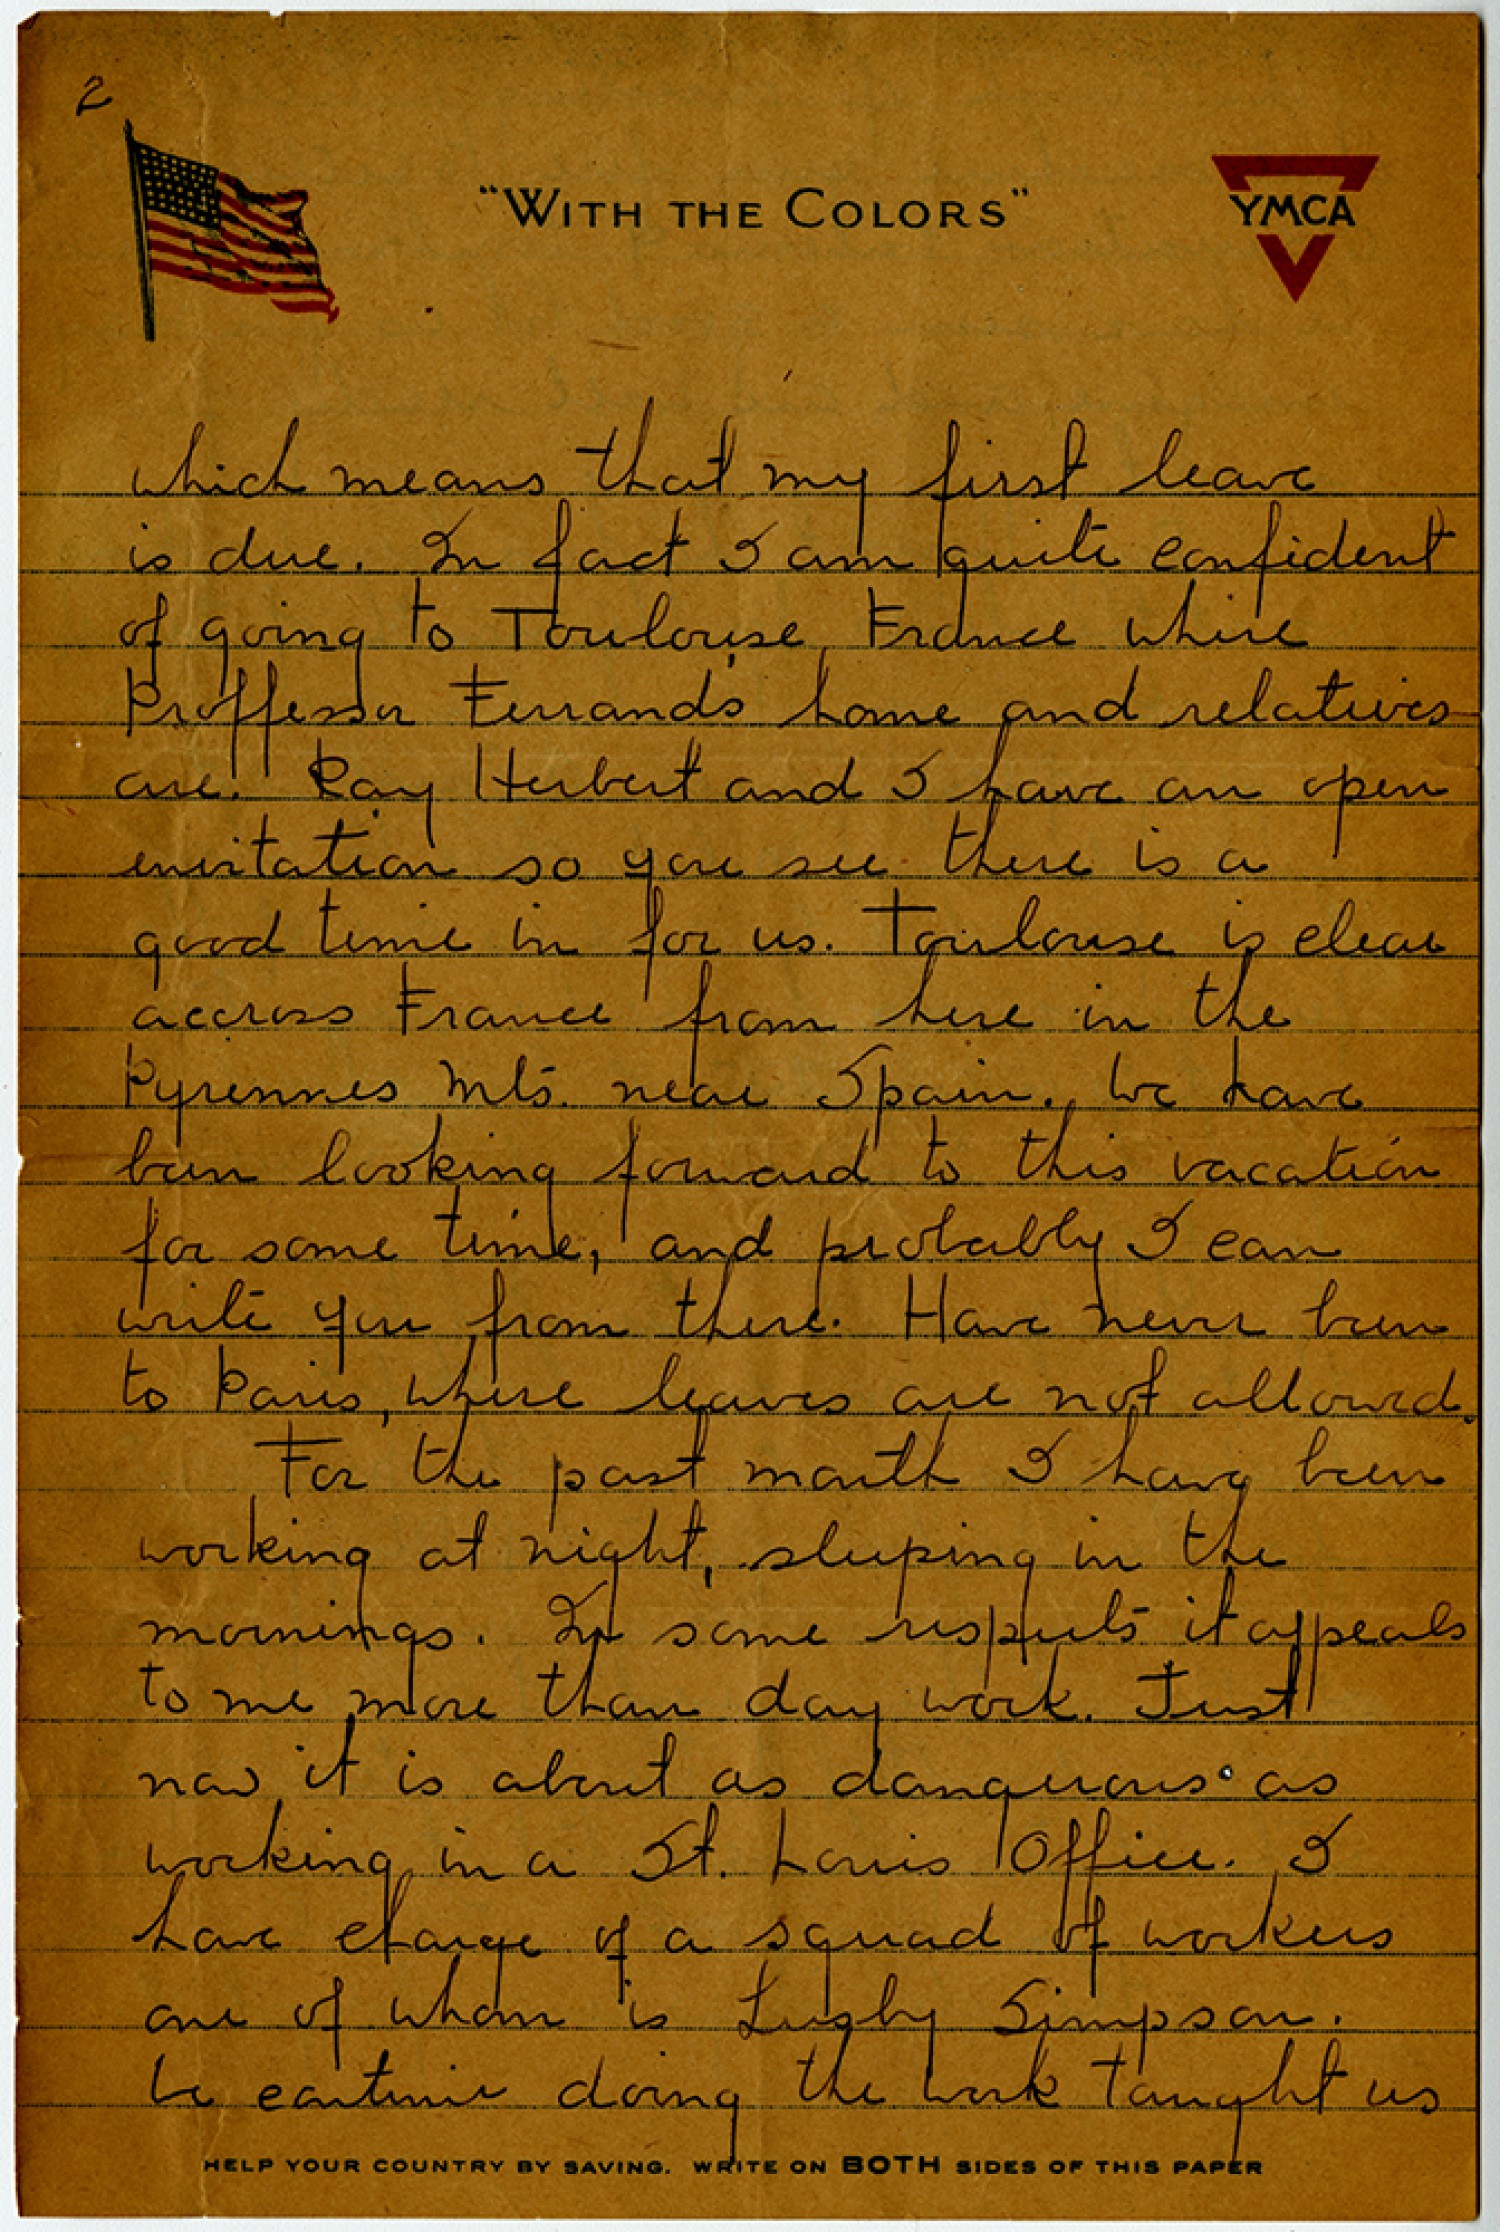 2
"WITH THE COLORS"
YMCA
which means that my first leave
is due. In fact I am quite confident
of going to Toulouse, France where
Proffessor Ferrand's home and relatives
are. Ray Herbert and I have an open
invitation so you see there is a
good time in for us. Toulouse is clear
accross France from here in the
Pyrennes Mts. near Spain. We have
been looking forward to this vacation
for some time, and probably I can
write you from there. Have never been
to Paris, where leaves are not allowed.
For the past month I have been
working at night, sleeping in the
mornings. In some respects it appeals
to me more than day work. Just
now it is about as dangerous as
working in a St. Louis Office. I
have charge of a squad of workers
one of whom is Lusby Simpson.
We continue doing the work taught us
HELP YOUR COUNTRY BY SAVING. WRITE ON BOTH SIDES OF THIS PAPER